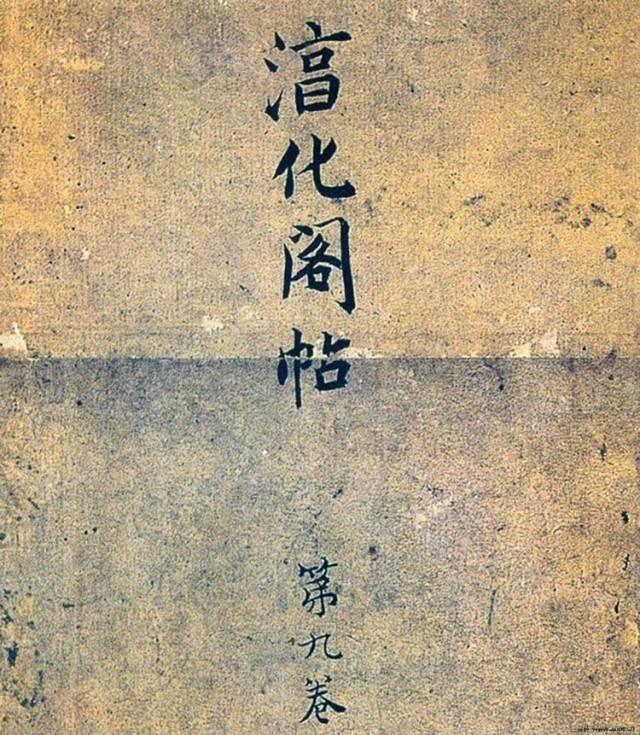 淳化阁帖
第九卷